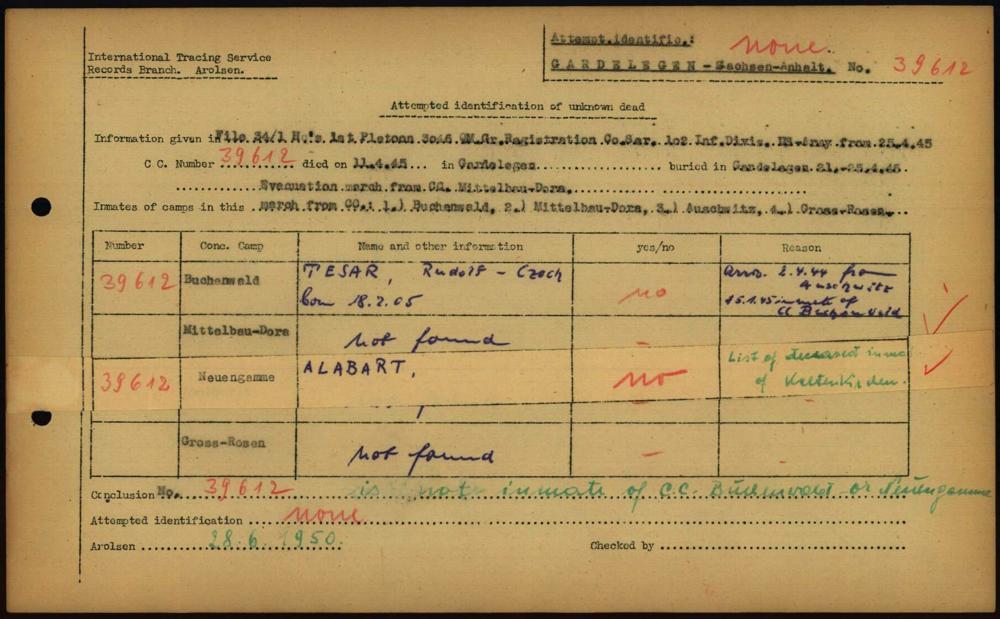 International Tracing Service
Records Branch. Arolsen.
Attempt.identific.: none
GARDELEGEN - Sachsen-Anhalt. No. 39612
Attempted identification of unknown dead
Information given in File 24/1 Hq's 1st Platoon 3046 QM.Gr.Registration Co.Sar. 102 Inf.Divis. US-Army from 25.4.45
C C. Number 39612 died on 11.4.45 in Gardelegen buried in Gardelegen 21.-25.4.45.
Evacuation march from CC. Mittelbau-Dora.
Inmates of camps in this march from CC: 1.) Buchenwald, 2.) Mittelbau-Dora, 3.) Auschwitz, 4.) Gross-Rosen.
Number Conc. Camp Name and other information yes/no Reason
39612 Buchenwald TESAR, Rudolf - Czech no arriv. 2.4.44 from
born 18.2.05 Auschwitz
15.1.45 inmate of
CC Buchenwald
Mittelbau-Dora not found -
39612 Neuengamme ALABART, no List of deceased inma
of Kaltenkirchen.
Gross-Rosen not found - -
Conclusion No. 39612 is not inmate of C.C. Buchenwald or Neuengamme
Attempted identification none
Arolsen 28.6.1950. Checked by